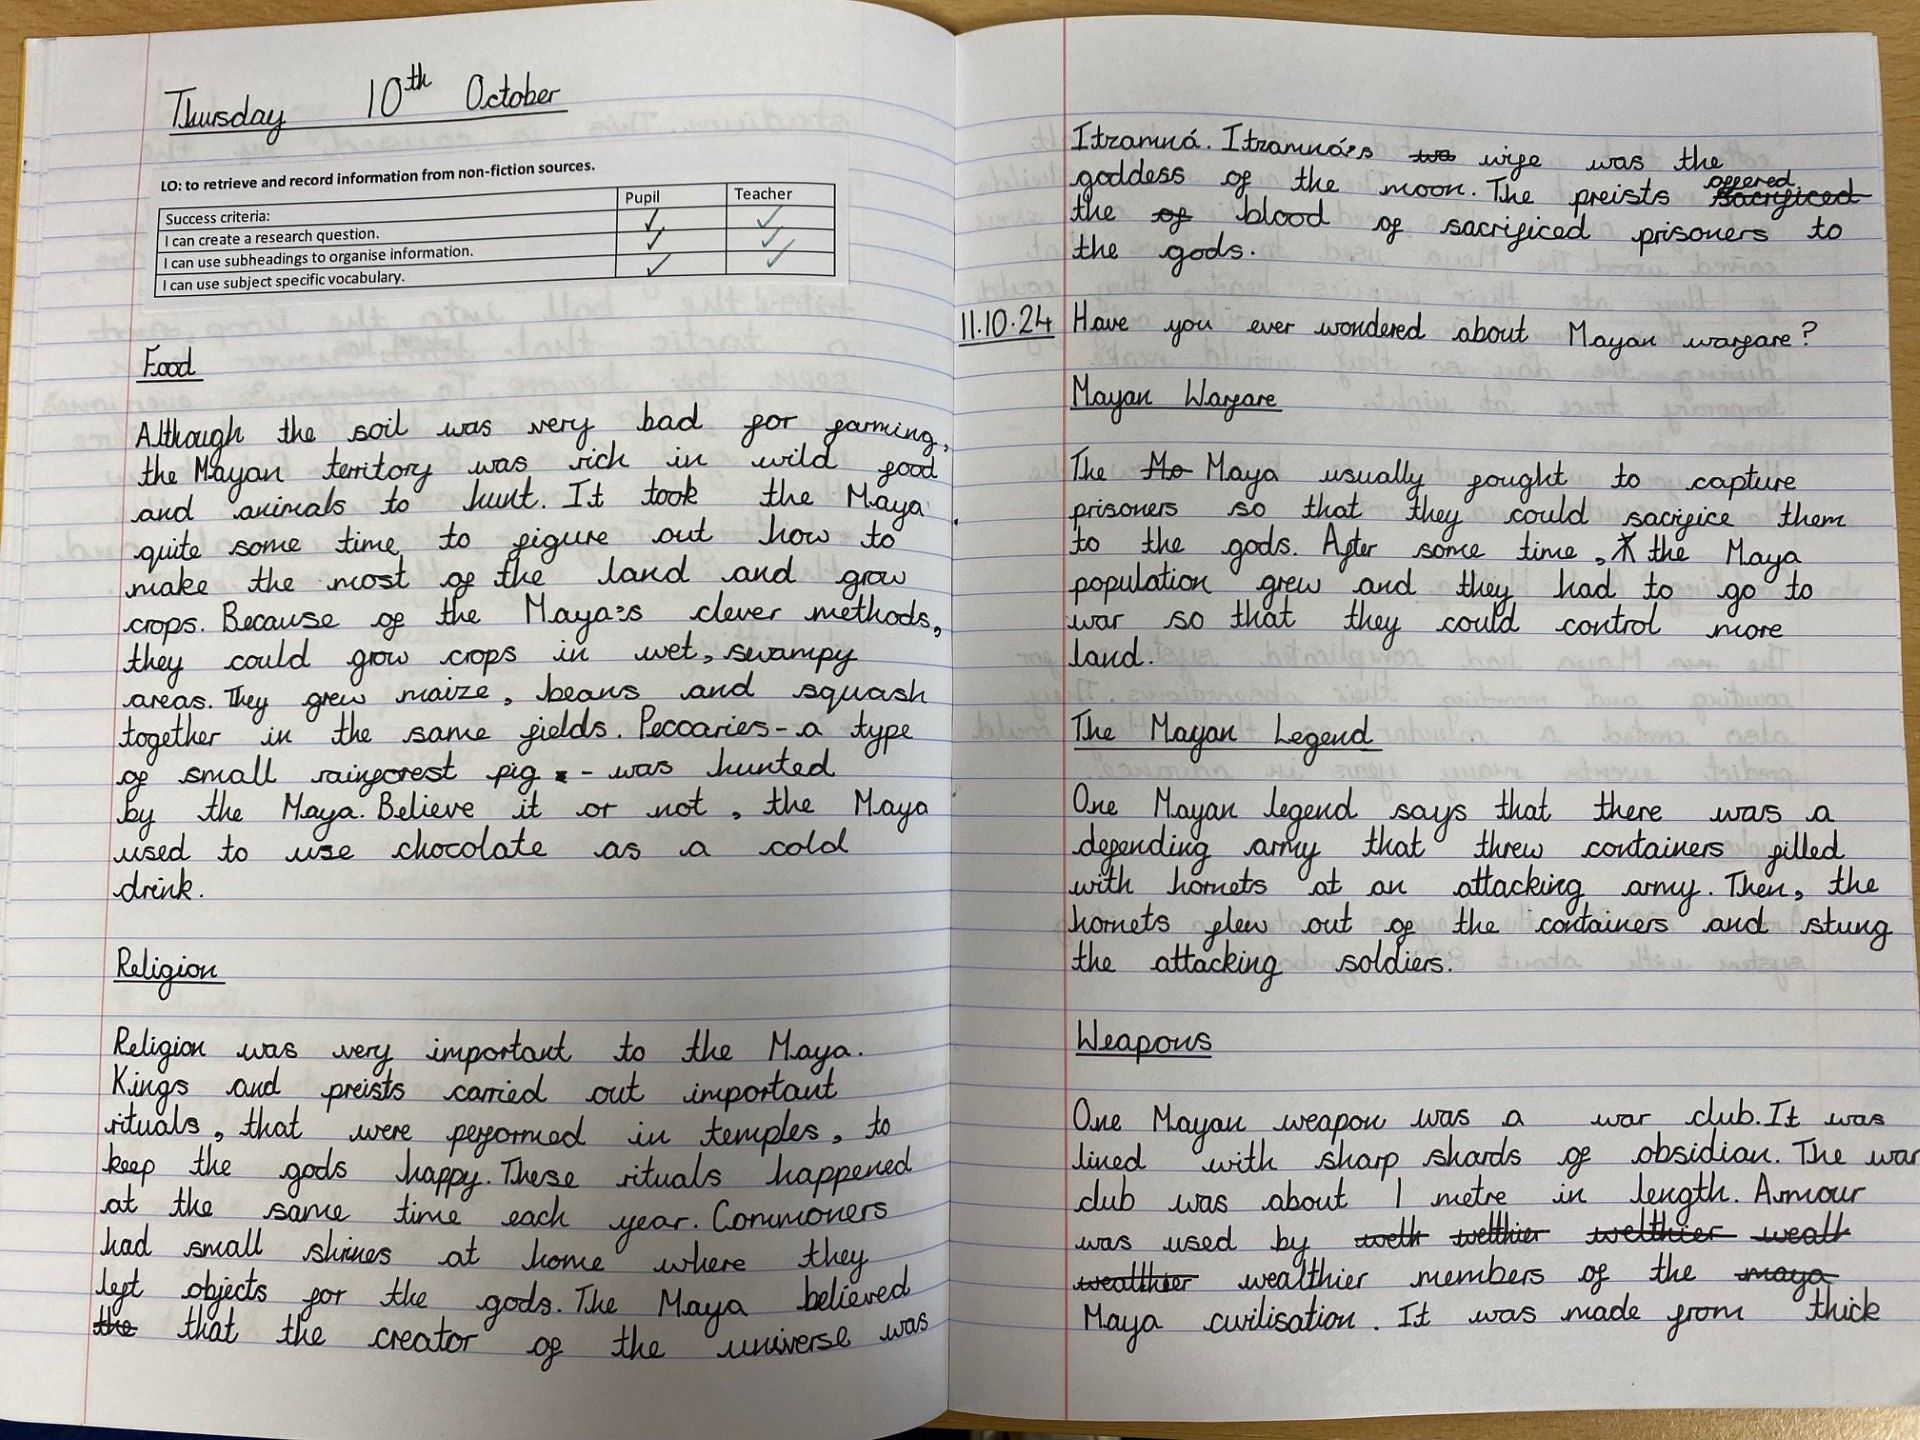 Thursday 10th October
LO: to retrieve and record information from non-fiction sources.
Pupil Teacher
Success criteria: ✓ ✓
I can create a research question. ✓ ✓
I can use subheadings to organise information.
I can use subject specific vocabulary. ✓ ✓
Food
Although the soil was very bad for farming,
the Mayan territory was rich in wild food
and animals to hunt. It took the Maya
quite some time to figure out how to
make the most of the land and grow
crops. Because of the Maya's clever methods,
they could grow crops in wet, swampy
areas. They grew maize, beans and squash
together in the same fields. Peccaries - a type
of small rainforest pig - was hunted
by the Maya. Believe it or not, the Maya
used to use chocolate as a cold
drink.
Religion
Religion was very important to the Maya.
Kings and preists carried out important
rituals, that were performed in temples, to
keep the gods happy. These rituals happened
at the same time each year. Commoners
had small shrines at home where they
left objects for the gods. The Maya believed
the that the creator of the universe was
Itzamná. Itzamná's wa wife was the
goddess of the moon. The preists sacrificed offered
the of blood of sacrificed prisoners to
the gods.
11.10.24 Have you ever wondered about Mayan warfare?
Mayan Warfare
The Mo Maya usually fought to capture
prisoners so that they could sacrifice them
to the gods. After some time, the Maya
population grew and they had to go to
war so that they could control more
land.
The Mayan Legend
One Mayan legend says that there was a
defending army that threw containers filled
with hornets at an attacking army. Then, the
hornets flew out of the containers and stung
the attacking soldiers.
Weapons
One Mayan weapon was a war club. It was
lined with sharp shards of obsidian. The war
club was about 1 metre in length. Armour
was used by welth welthier welthier wealt
wealthier wealthier members of the maya
Maya civilisation. It was made from thick